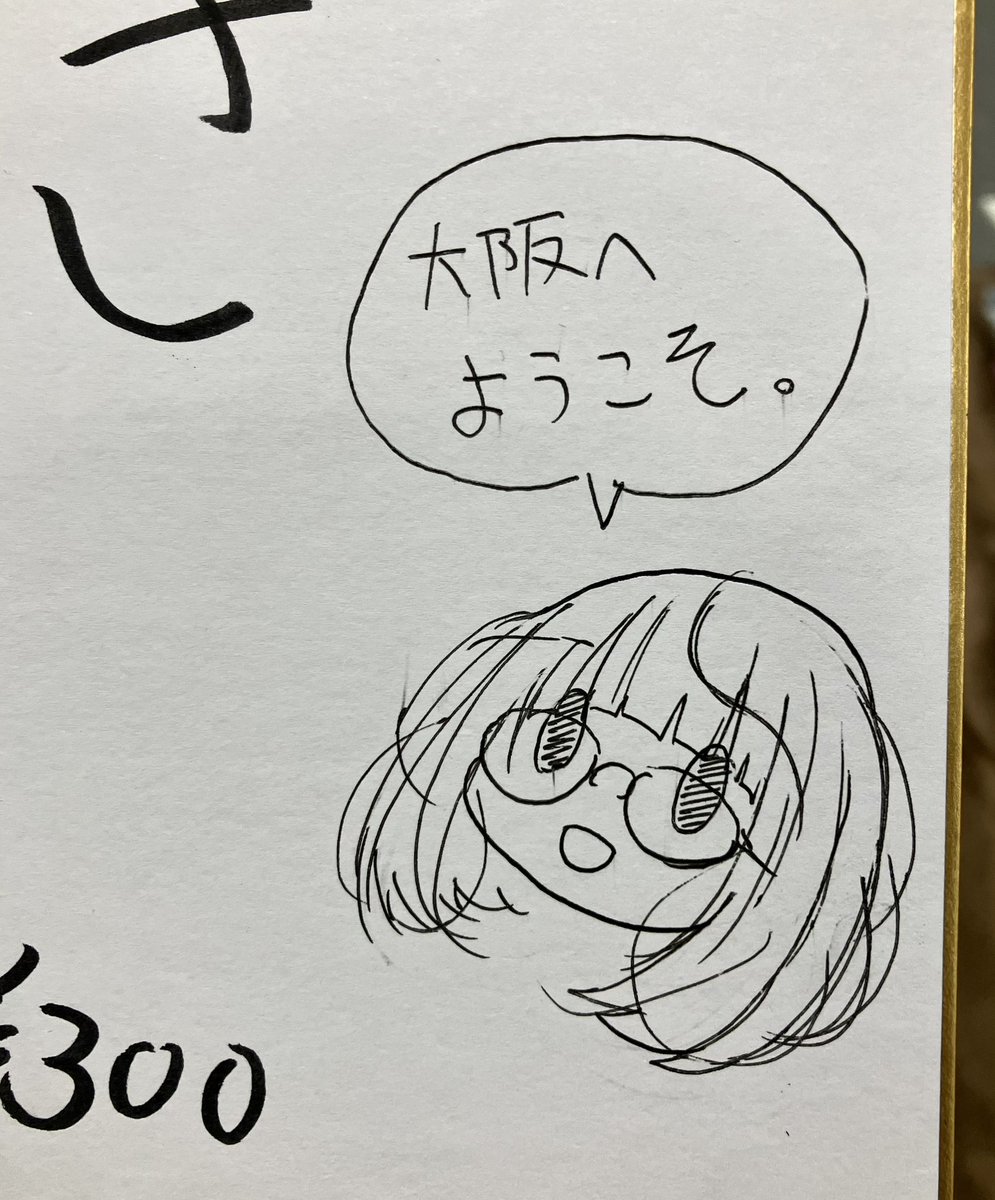 さし
大阪へ
ようこそ。
¥300